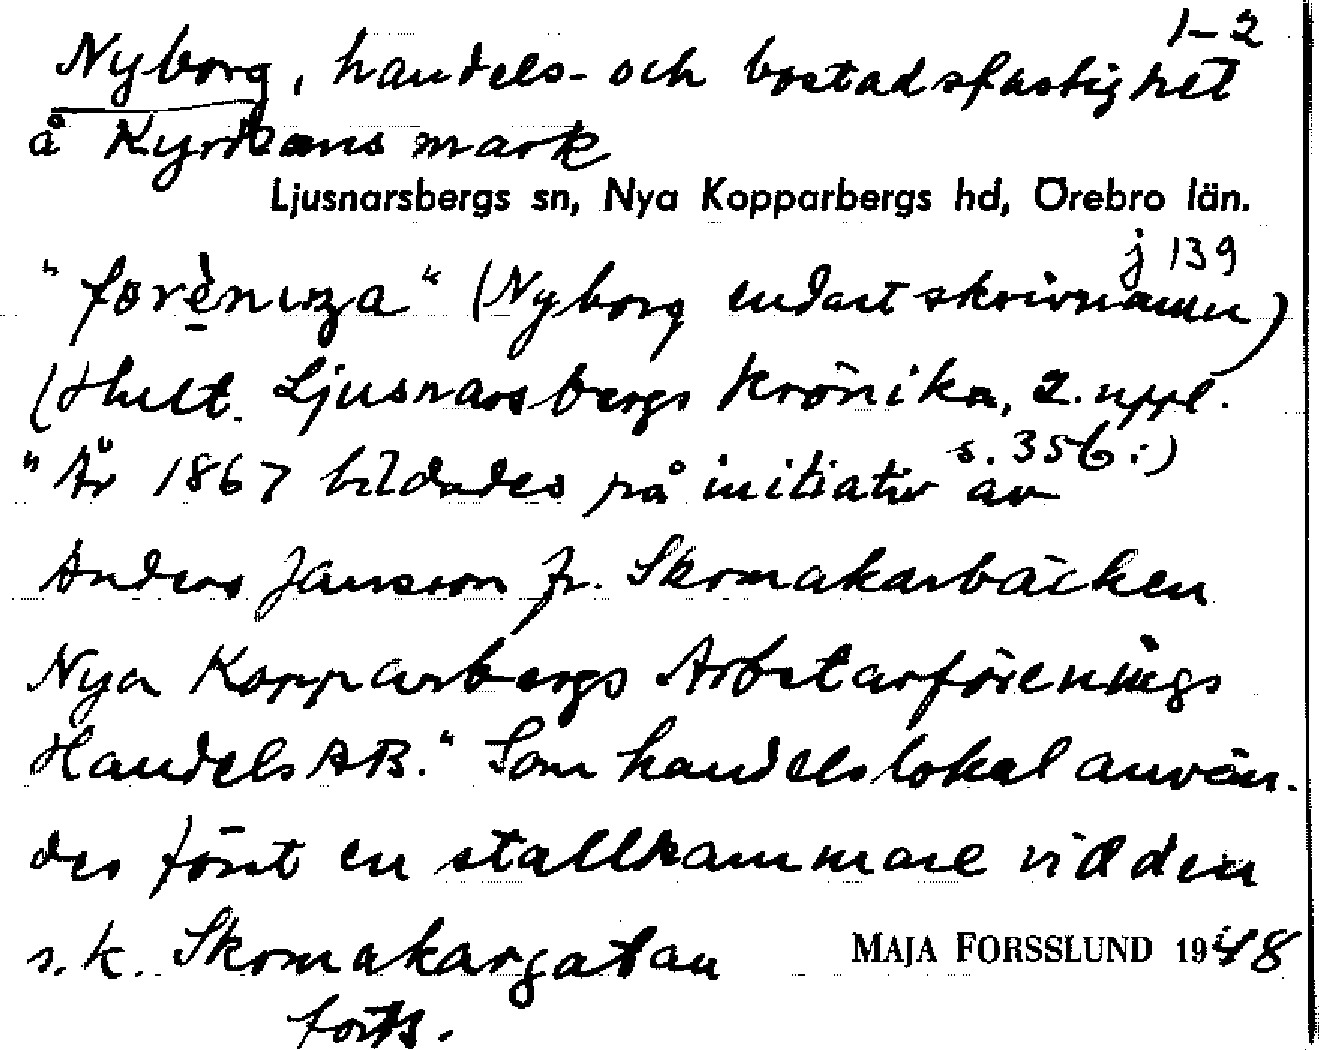 1-2
Nyborg, handels- och bostadsfastighet
å Kyrkans mark
Ljusnarsbergs sn, Nya Kopparbergs hd, Örebro län.
j 139
"förèniŋa" (Nyborg endast skrivnamn)
(Hult. Ljusnarsbergs krönika, 2. uppl.
s. 356:)
"År 1867 bildades på initiativ av
Anders Jansson fr. Skomakarbäcken
Nya Kopparbergs Arbetarförenings
Handels AB." Som handelslokal använ-
des först en stallkammare vid den
s.k. Skomakargatan
MAJA FORSSLUND 1948
forts.